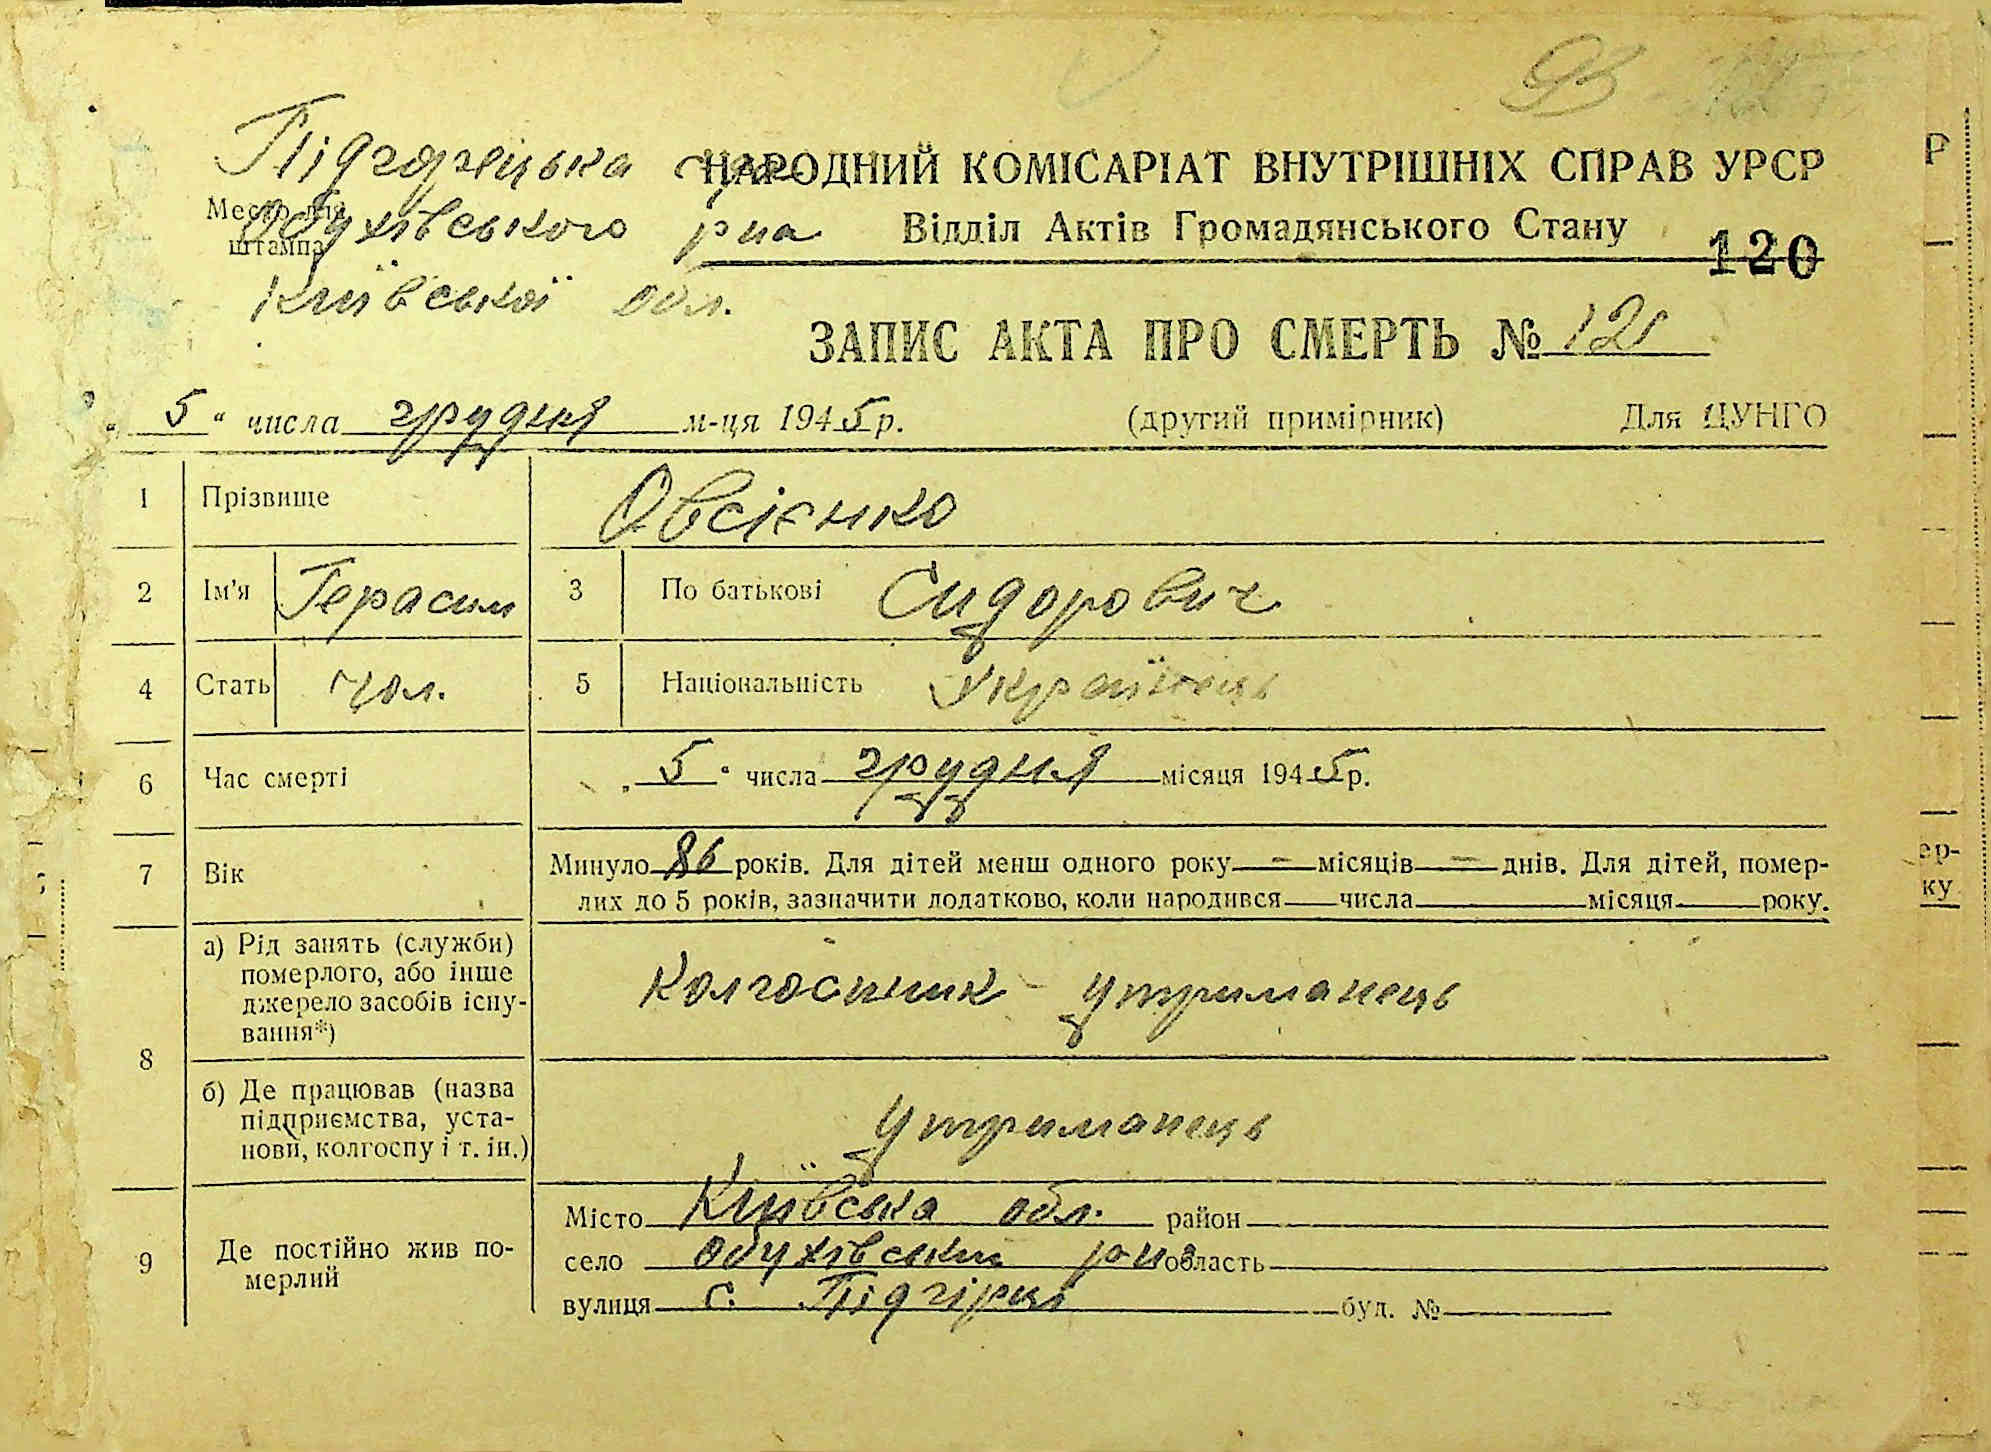 Підгорецька с/рада НАРОДНИЙ КОМІСАРІАТ ВНУТРІШНІХ СПРАВ УРСР
Место для штампа
Обухівського р-на Відділ Актів Громадянського Стану
120
Київської обл.
ЗАПИС АКТА ПРО СМЕРТЬ № 121
„ 5 “ числа грудня м-ця 1945 р. (другий примірник) Для ЦУНГО
1 Прізвище Овсієнко
2 Ім'я Герасим 3 По батькові Сидорович
4 Стать чол. 5 Національність Українець
6 Час смерті „ 5 “ числа грудня місяця 1945 р.
7 Вік Минуло 86 років. Для дітей менш одного року — місяців — днів. Для дітей, помер-
лих до 5 років, зазначити додатково, коли народився числа місяця року.
8 а) Рід занять (служби)
померлого, або інше
джерело засобів існу-
вання*)
Колгоспник - утриманець
б) Де працював (назва
підприємства, уста-
нови, колгоспу і т. ін.)
утриманець
9 Де постійно жив по-
мерлий
Місто Київська обл. район
село Обухівський р-н область
вулиця с. Підгірці буд. №
Р
ер-
ку